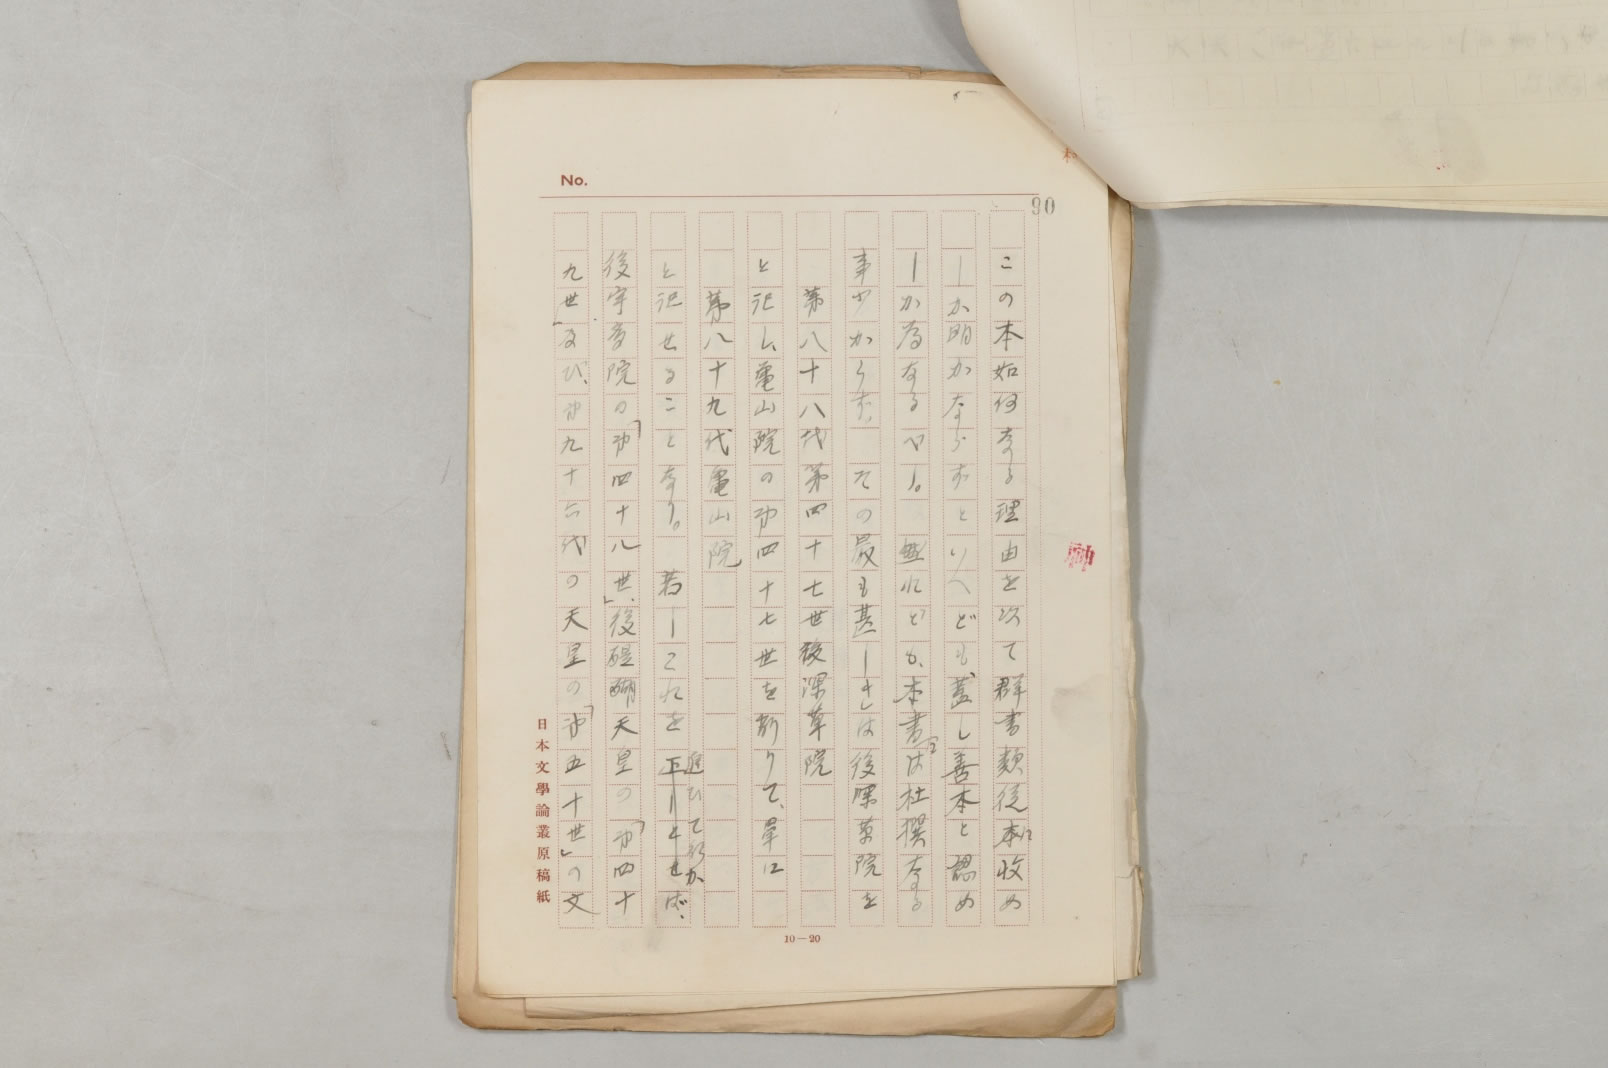 No.
90
この本如何なる理由を以て群書類従本に收め
しか明かならずといへども、蓋し善本と認め
しが為なるべし。然れども、本書には杜撰なる
事少からず。その最も甚しきは後深草院を
第八十八代第四十七世後深草院
と記し、龜山院の第四十七世を削りて、單に
第八十九代龜山院
と記せることなり。若しこれを正しとせば、
進びて行か
後宇多院の「第四十八世」、後醍醐天皇の「第四十
九世」及び、第九十六代の天皇の「第五十世」の文
日本文學論叢原稿紙
10—20